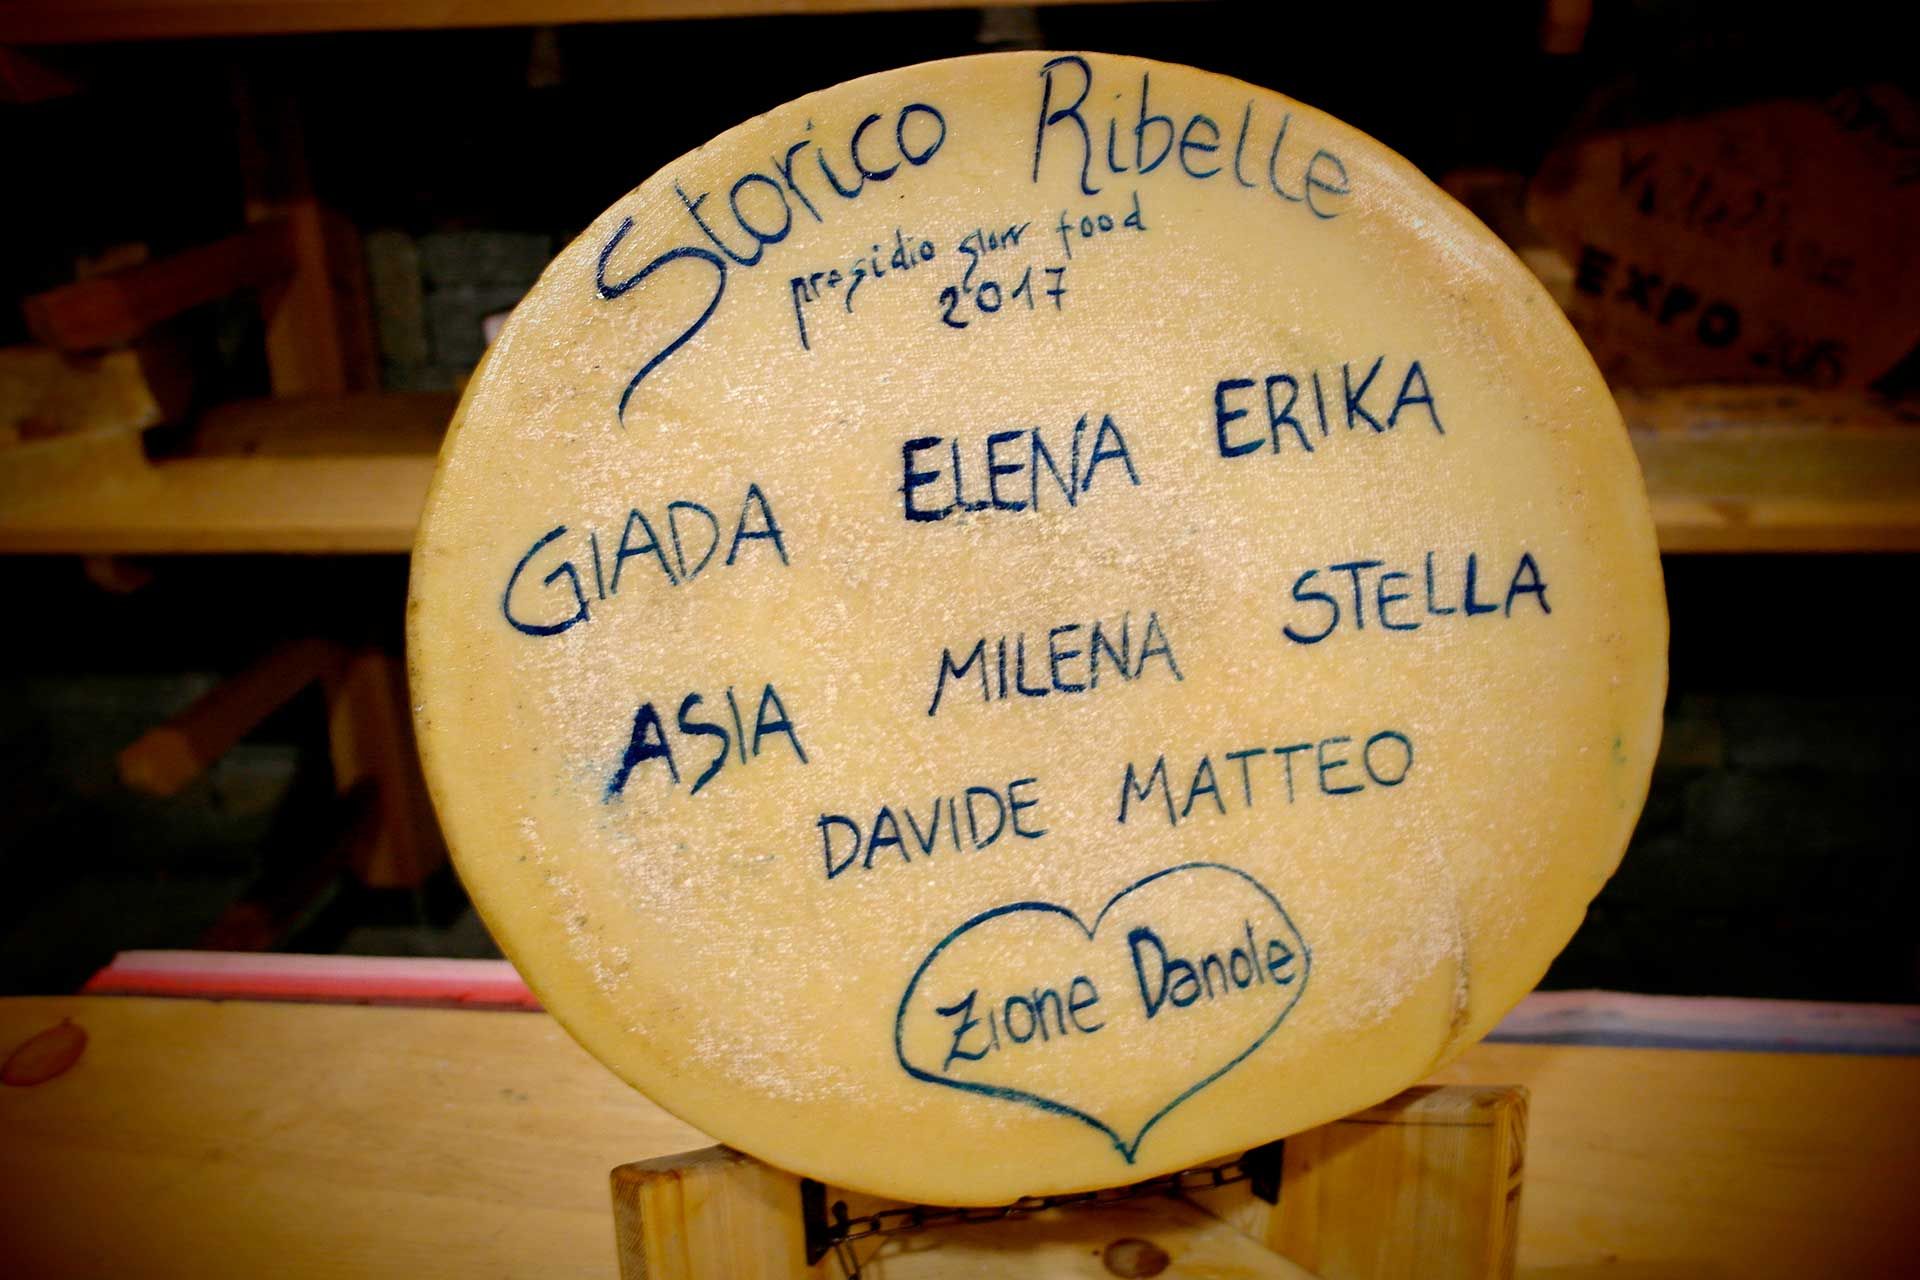 Storico Ribelle
presidio slow food
2017
GIADA ELENA ERIKA
ASIA MILENA STELLA
DAVIDE MATTEO
Zione Danole
EXPO 2015